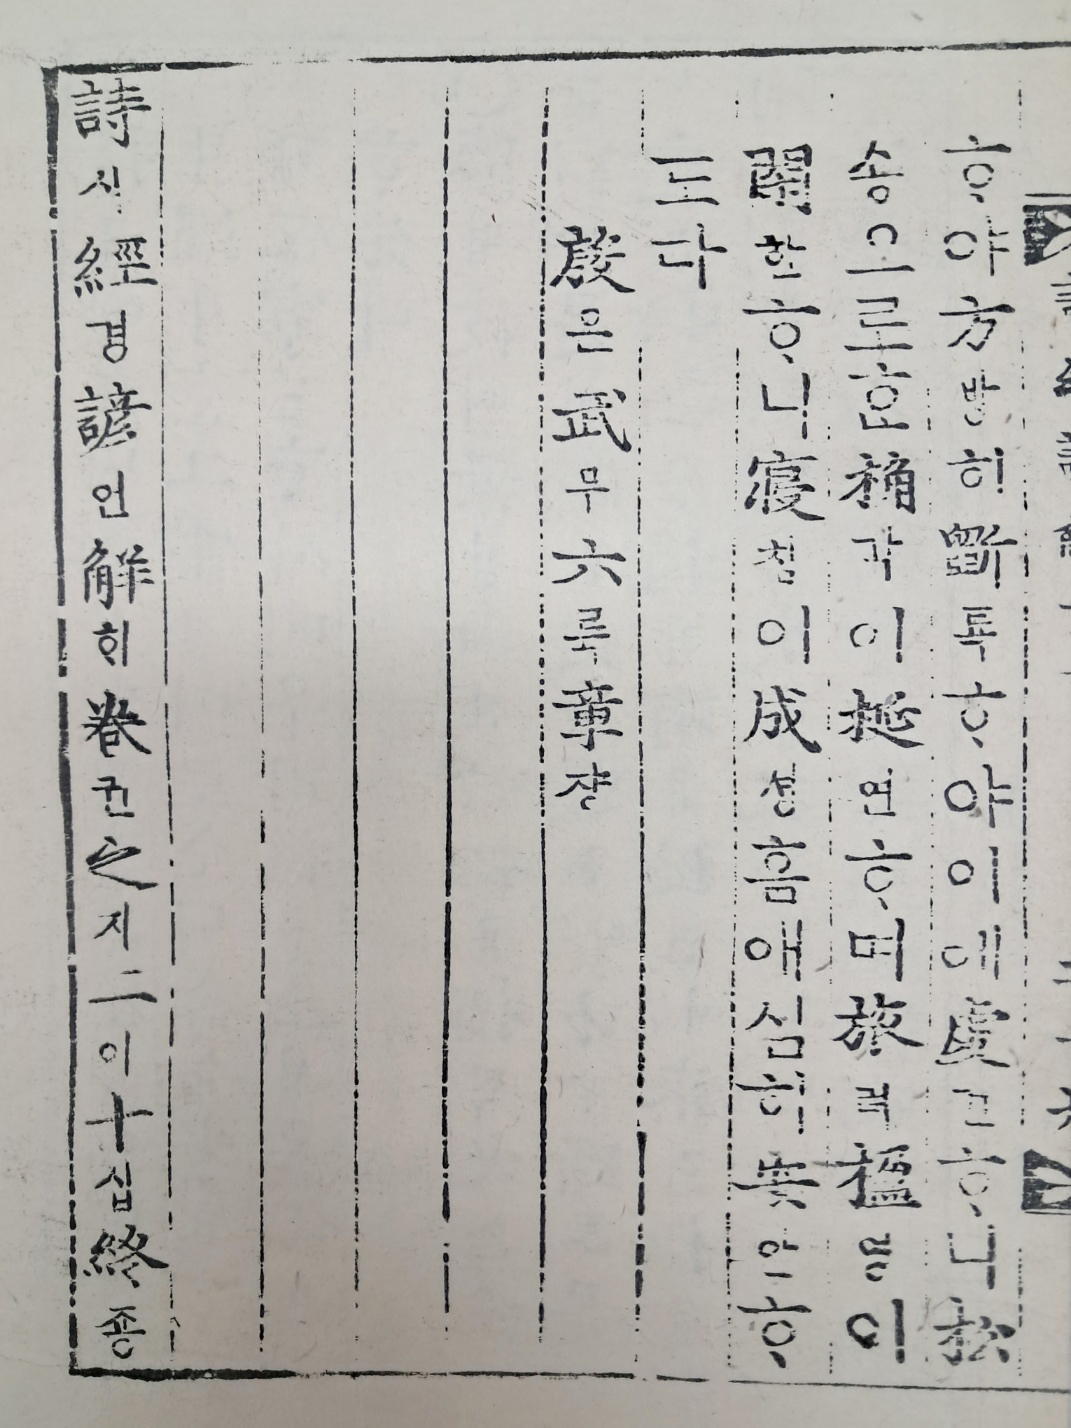 ᄒᆞ야方방히斲톡ᄒᆞ야이에虔건ᄒᆞ니松
숑으로ᄒᆞᆫ桷각이梴연ᄒᆞ며旅려楹영이
閑한ᄒᆞ니寢침이成셩홈애심히安안ᄒᆞ
도다
殷은武무六륙章쟝
詩시經경諺언解ᄒᆡ卷권之지二이十십終죵